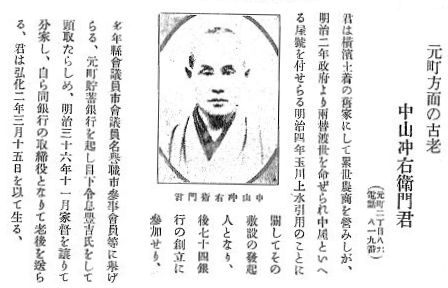 元町方面の古老
中山冲右衛門君
(元町二丁目八六
電話 八一九番)
君は横濱土着の舊家にして累世農商を營みしが、
明治二年政府より兩替渡世を命ぜられ中屋といへ
る屋號を付せらる明治四年玉川上水引用のことに
關してその
敷設の發起
人となり、
後七十四銀
行の創立に
參加せり、
君門衛右冲山中
多年縣會議員市會議員名譽職市參事會員等に擧げ
らる、元町貯蓄銀行を起し目下令息豐吉氏をして
頭取たらしめ、明治三十六年十一月家督を讓りて
分家し、自ら同銀行の取締役となりて老後を送ら
る、君は弘化二年三月十五日を以て生る、